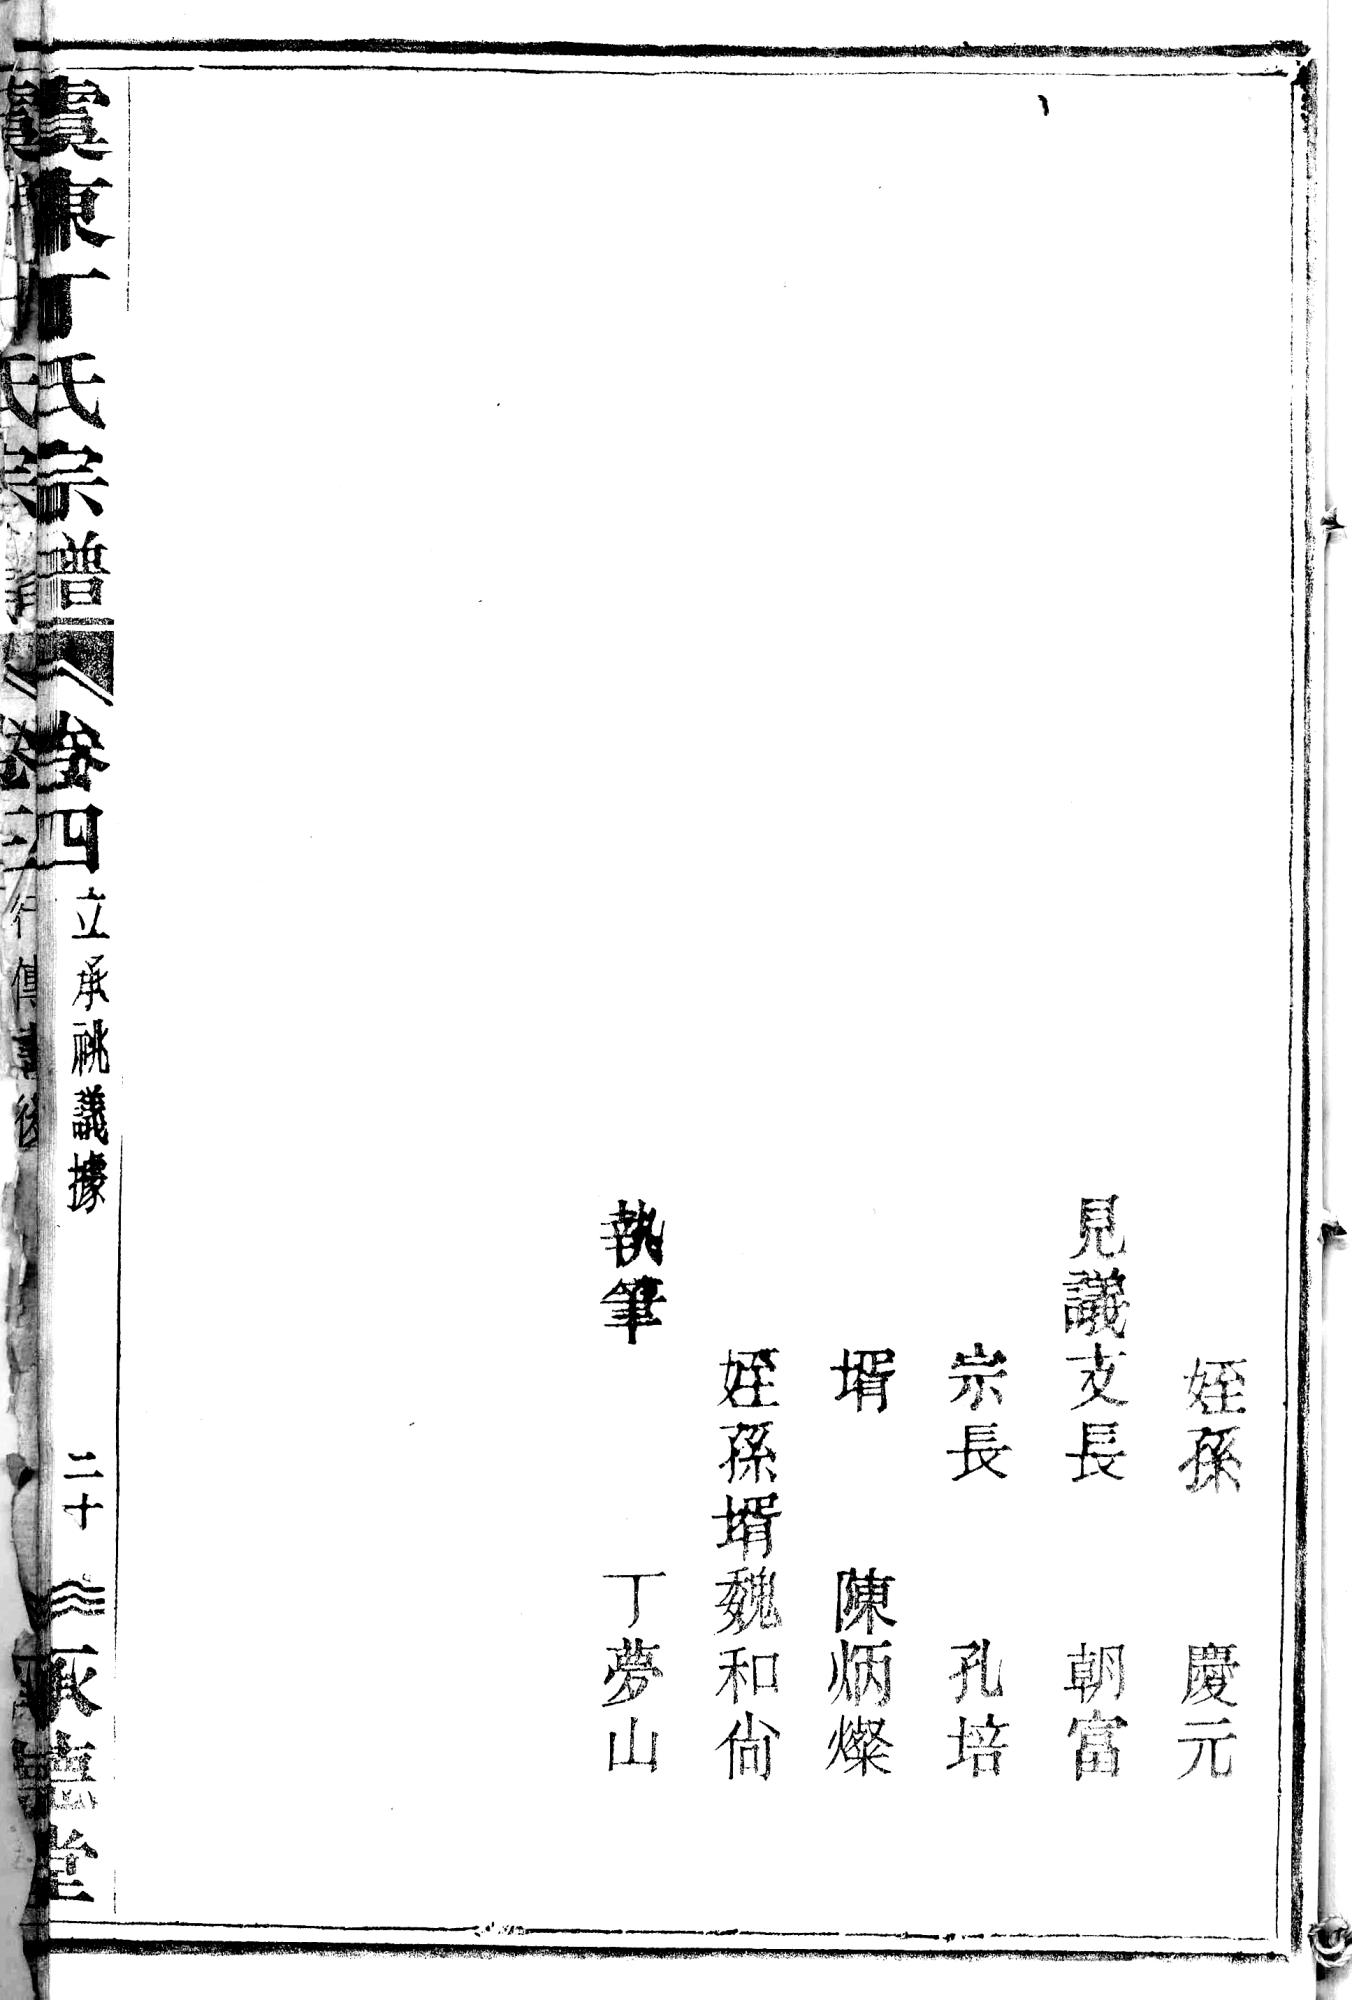 姪孫 慶元
見議支長 朝富
宗長 孔培
壻 陳炳燦
姪孫壻魏和尙
執筆 丁夢山
虞東丁氏宗譜 卷四 立承祧議據 二十 承德堂